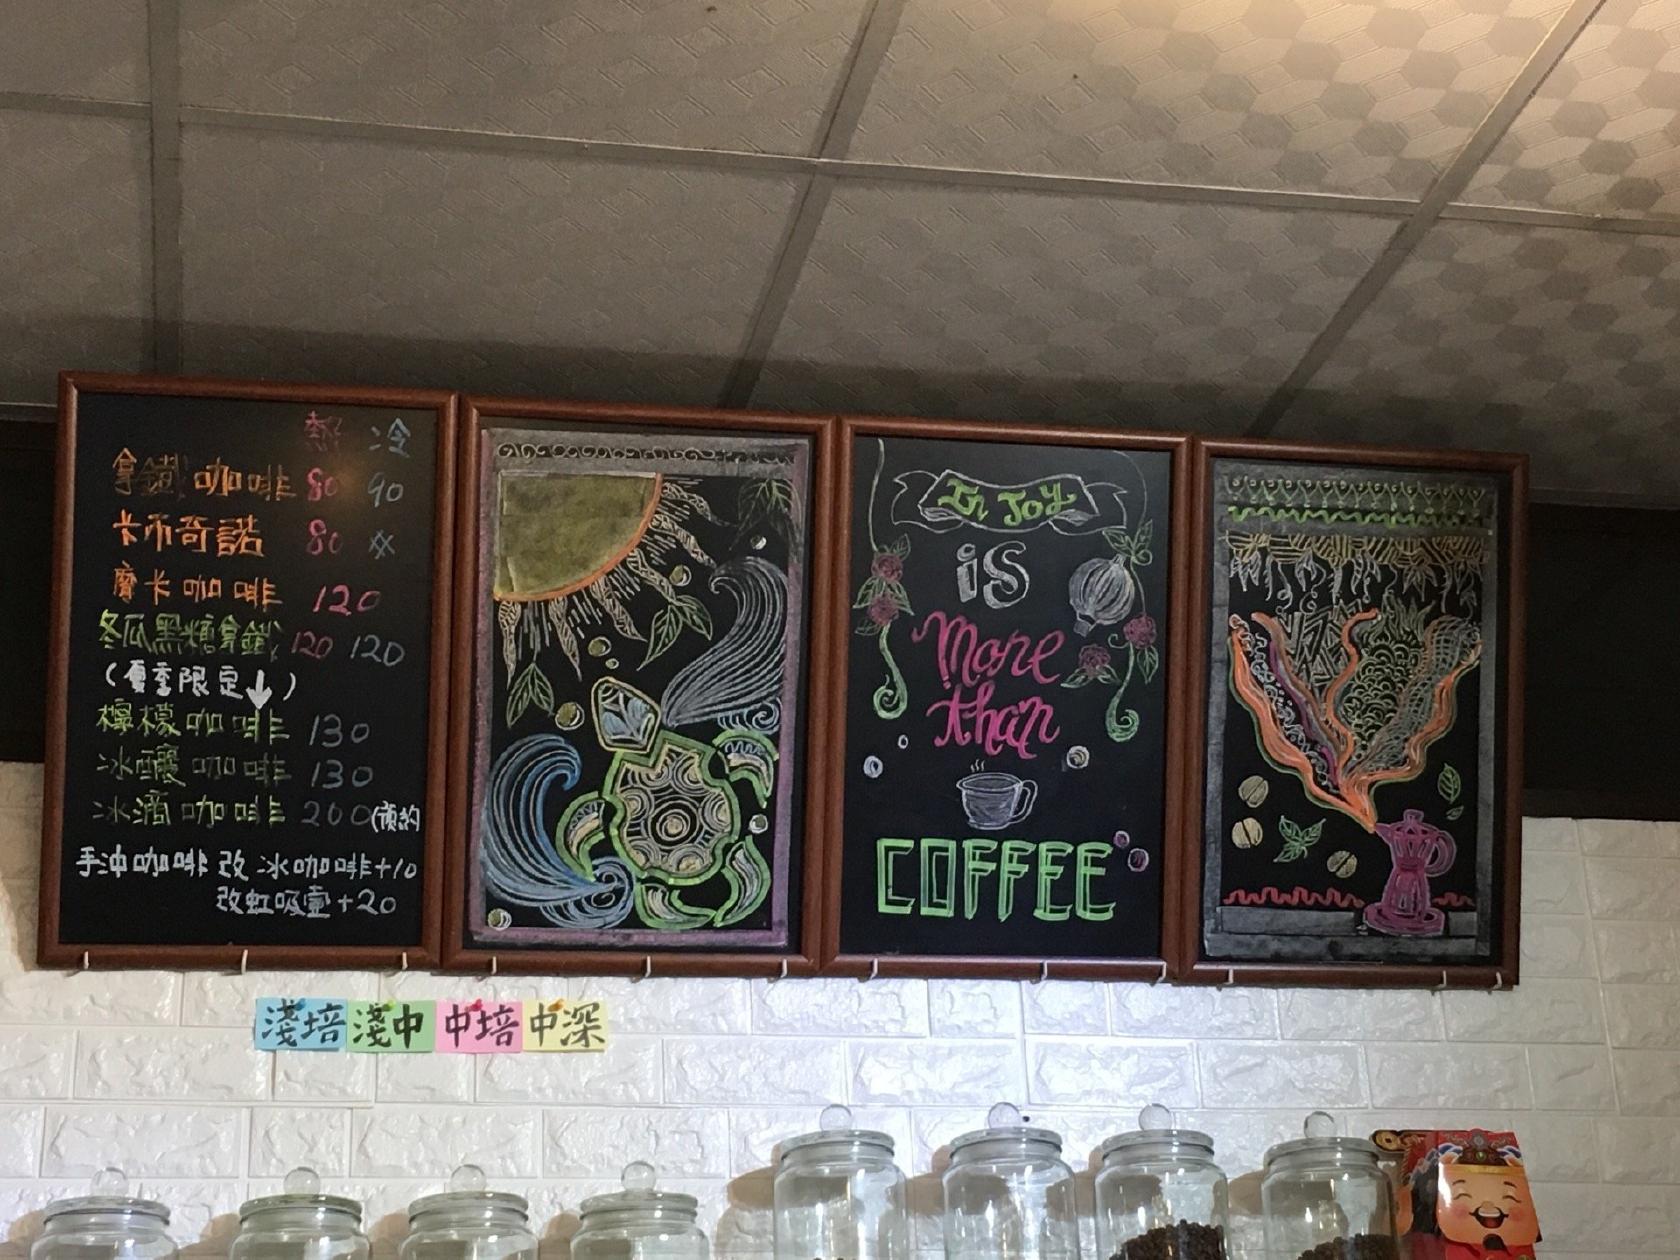 熱 冷
拿鐵咖啡 80 90
卡布奇諾 80 ※
摩卡咖啡 120
冬瓜黑糖拿鐵 120 120
(夏季限定↓)
檸檬咖啡 130
冰釀咖啡 130
冰滴咖啡 200(預約
手沖咖啡改冰咖啡+10
改虹吸壺+20
In Joy
is
More
than
COFFEE
淺培 淺中 中培 中深